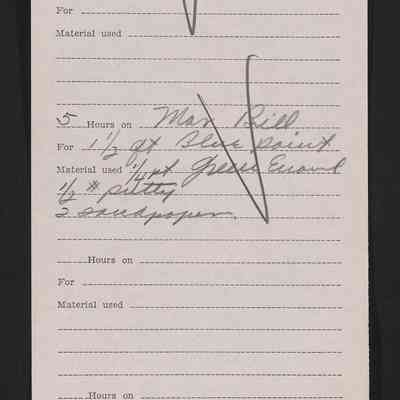 For
Material used
5 Hours on Mar Bill
For 1 1/2 qt Blue paint
Material used 1/4 pt Green Enaml
1/2 # putty
2 sandpaper.
Hours on
For
Material used
Hours on